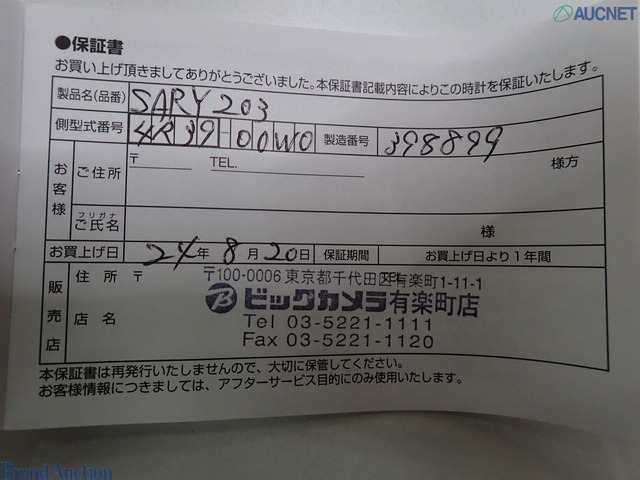 AUCNET
●保証書
お買い上げ頂きましてありがとうございました。本保証書記載内容によりこの時計を保証いたします。
製品名(品番) SARY203
側型式番号 4R39-00W0 製造番号 398899
お客様 ご住所 〒 TEL. 様方
フリガナ
ご氏名 様
お買上げ日 24年8月20日 保証期間 お買上げ日より1年間
販売店 住所 〒 TEL
〒100-0006 東京都千代田区有楽町1-11-1
店名 ビックカメラ有楽町店
Tel 03-5221-1111
Fax 03-5221-1120
本保証書は再発行いたしませんので、大切に保管してください。
お客様情報につきましては、アフターサービス目的にのみ使用いたします。
Brand Auction